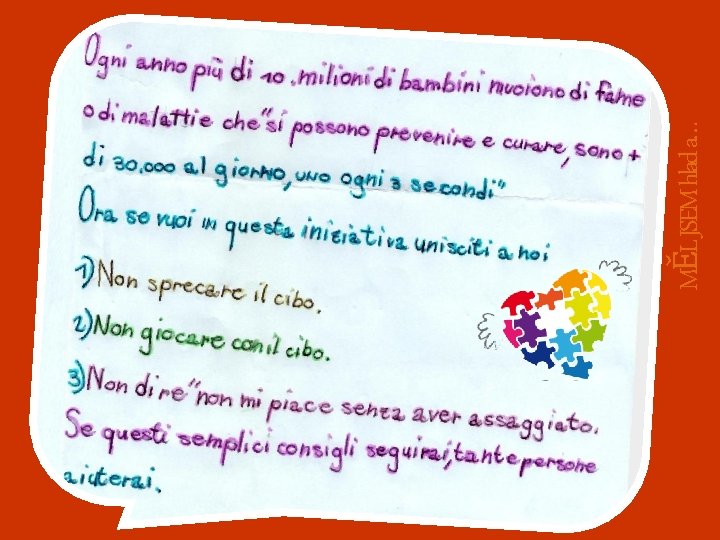 Ogni anno più di 10.milioni di bambini muoiono di fame
o di malattie che "si possono prevenire e curare, sono +
di 30.000 al giorno, uno ogni 3 secondi"
Ora se vuoi in questa iniziativa unisciti a noi
1) Non sprecare il cibo.
2) Non giocare con il cibo.
3) Non dire "non mi piace senza aver assaggiato.
Se questi semplici consigli seguirai, tante persone
aiuterai.
MĚL JSEM hlad a...